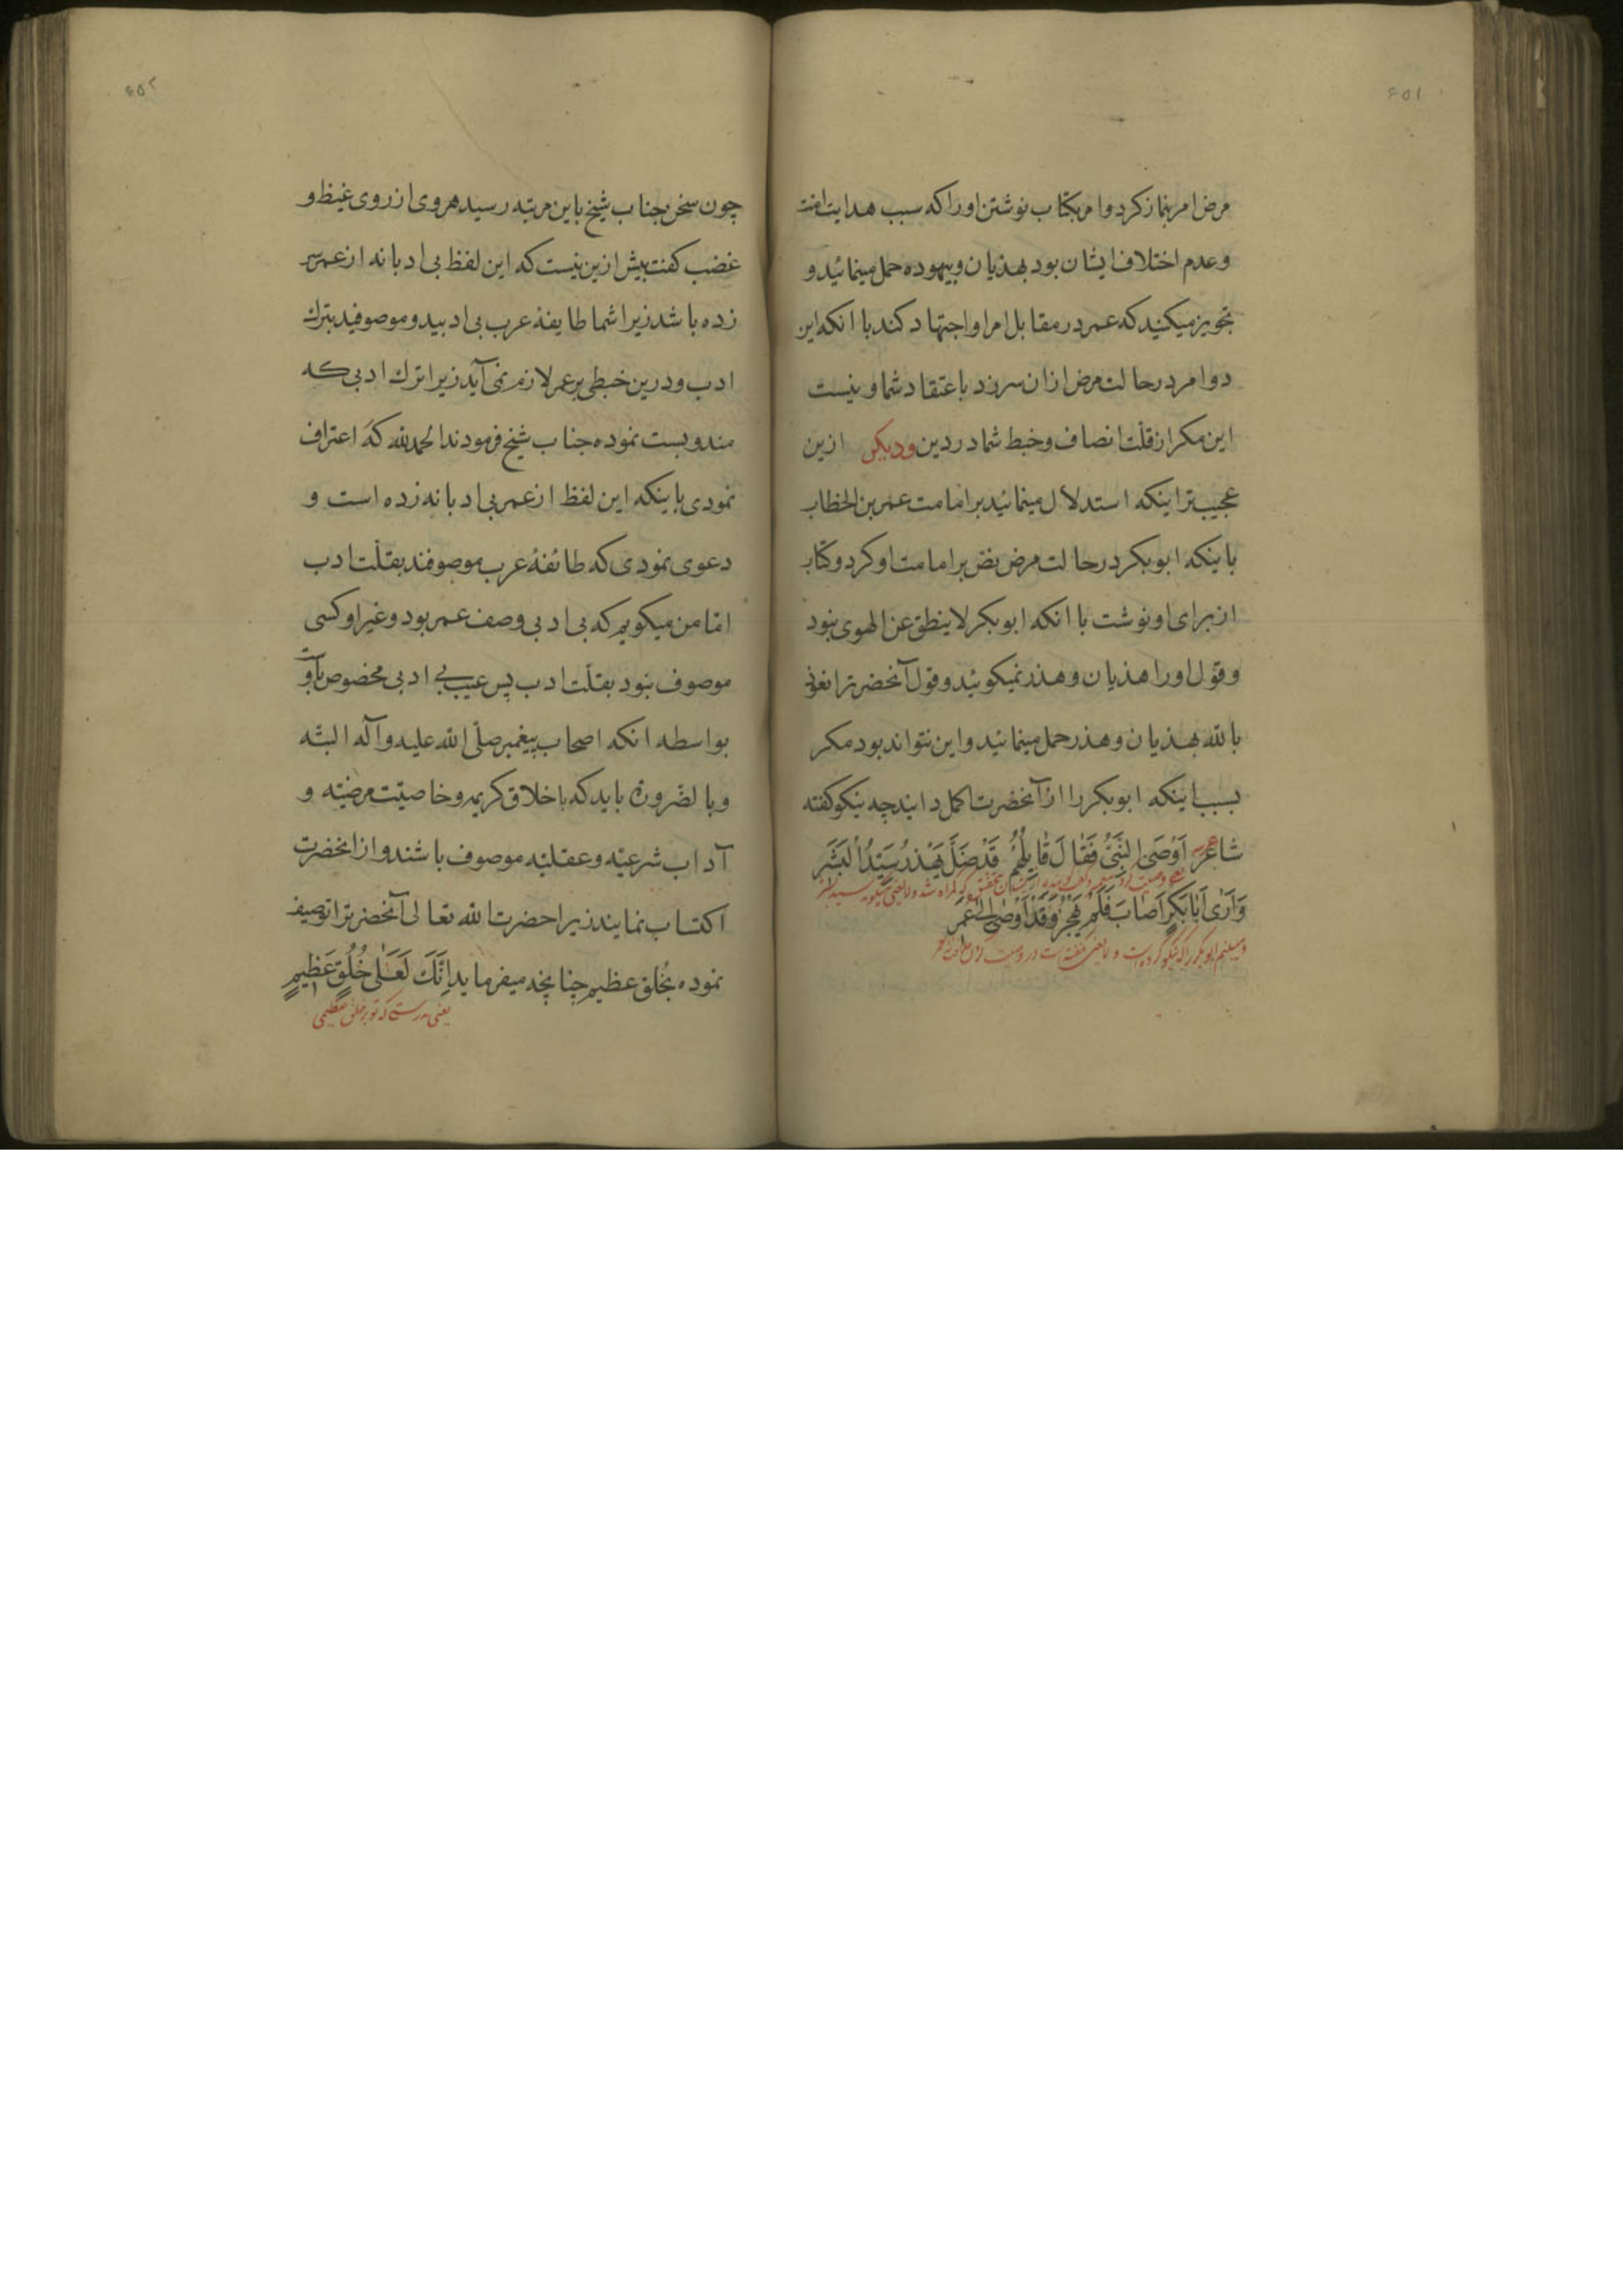 ۶۵۱
مرض امر بنماز کرد و امر بکتاب نوشتن او را که سبب هدایت امت
و عدم اختلاف ایشان بود بهذیان و بیهوده حمل مینمائید و
تجویز میکنید که عمر در مقابل امر او اجتهاد کند با انکه این
دو امر در حالت مرض ازان سرزد باعتقاد شما و نیست
این مکر از قلّت انصاف و خبط شما در دین و دیکر ازین
عجیب‌تر اینکه استدلال مینمائید بر امامت عمر بن الخطاب
باینکه ابوبکر در حالت مرض نص بر امامت او کرد و کتاب
از برای او نوشت با انکه ابوبکر لا ینطق عن الهوی نبود
و قول او را هذیان و هذر نمیکوئید و قول آنحضرترا نعوذ
بالله بهذیان و هذر حمل مینمائید و این نتواند بود مکر
بسبب اینکه ابوبکر را از آنحضرت اکمل دانید چه نیکو کفته
شاعر اَوْصَی النَّبِیُّ فَقَالَ قَایِلُهُمْ قَدْ ضَلَّ یَهْذُرُ سَیِّدُ الْبَشَرِ
وَاَرَی اَبَابَکْرٍ اَصَابَ فَلَمْ یَهْجُرْ وَقَدْ اَوْصٰی اِلٰی عُمَرِ
۶۵۲
چون سخن جناب شیخ باین مرتبه رسید هروی از روی غیظ و
غضب کفت بیش ازین نیست که این لفظ بی ادبانه از عمر سر
زده باشد زیرا شما طایفهٔ عرب بی ادبید و موصوفید بترك
ادب و درین خبطی بر عمر لازم نمی آید زیرا ترك ادبی که
مندوبست نموده جناب شیخ فرمودند الحمد لله که اعتراف
نمودی باینکه این لفظ از عمر بی ادبانه زده است و
دعوی نمودی که طائفهٔ عرب موصوفند بقلّت ادب
امّا من میکویم که بی ادبی وصف عمر بود و غیر او کسی
موصوف نبود بقلّت ادب پس عیب بی ادبی مخصوص باوست
بواسطه انکه اصحاب پیغمبر صلّی الله علیه و آله البتّه
و بالضّرورة باید که باخلاق کریمه و خاصیّت مرضیّه و
آداب شرعیّه و عقلیّه موصوف باشند و از انحضرت
اکتساب نمایند زیرا حضرت الله تعالی آنحضرترا توصیف
نموده بخُلق عظیم چنانچه میفرماید اِنَّكَ لَعَلٰی خُلُقٍ عَظِیمٍ
یعنی بدرستی که تو بر خلق عظیمی